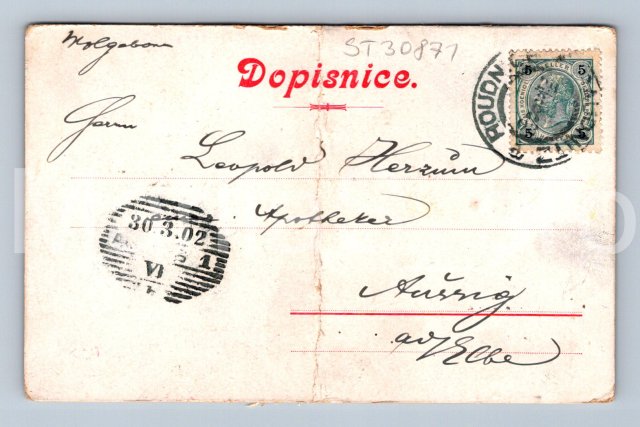 ST30871
Dopisnice.
ROUDN
5 5
5 5
Herrn
Leopold Herzum
Apotheker
30.3.02
1
VI
Aussig
a/d Elbe